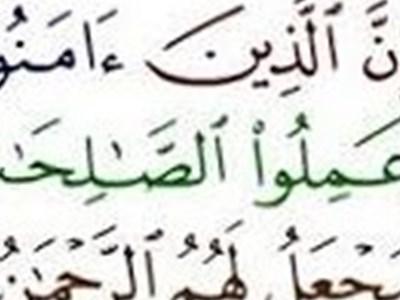 نَّ ٱلَّذِينَ ءَامَنُو
عَمِلُوا۟ ٱلصَّـٰلِحَـٰ
جْعَلُ لَهُمُ ٱلرَّحْمَـٰنُ